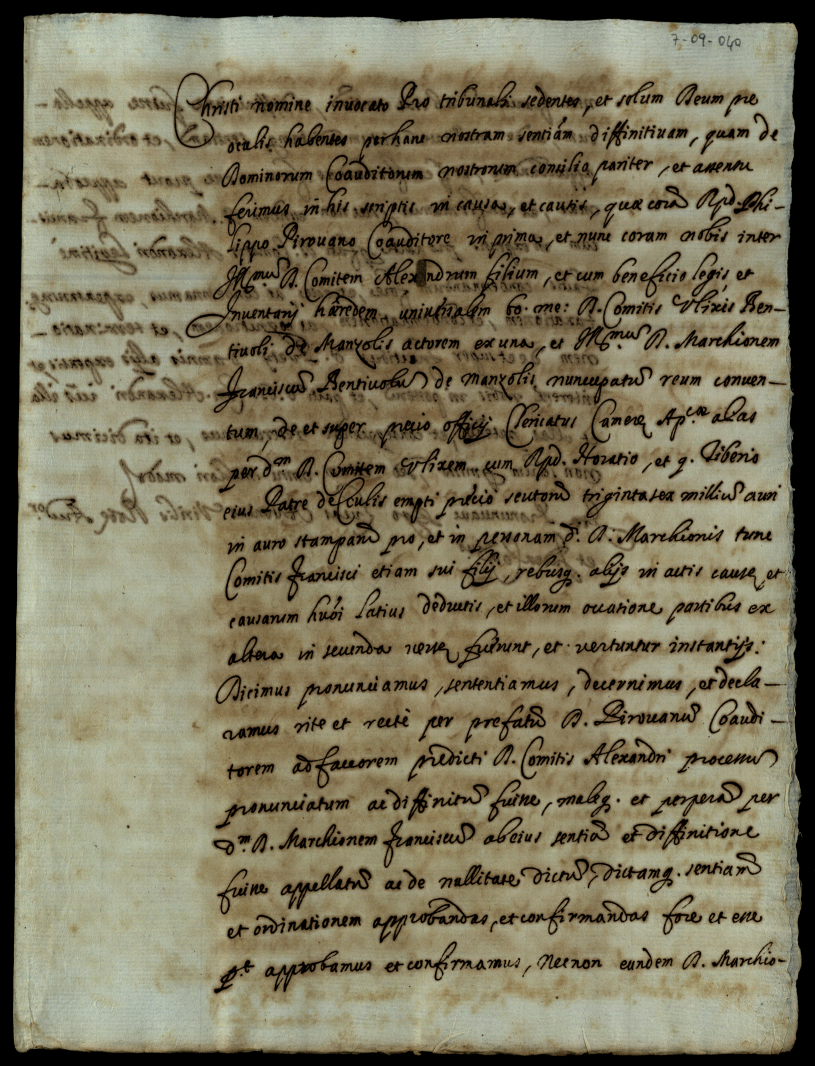 7-09-040
Christi nomine inuocato Pro tribunali sedentes, et solum Deum pre
oculis habentes per hanc nostram sentiám diffinitiuam, quam de
Dominorum Coauditorum nostrorum consilio pariter, et assensu
ferimus in his scriptis in causa, et causis, quæ corã Rpd. Phi-
lippo Pirouano Coauditore in prima, et nunc coram nobis inter
Ill.mũ D. Comitem Alexandrum filium, et cum beneficio legis et
Inuentarij hæredem uniuersalem bo: me: D. Comitis Vlixis Ben-
tiuoli de Manzolis actorem ex una, et Ill.mũ D. Marchionem
Franciscũ Bentiuolũ de Manzolis nuncupatũ reum conuen-
tum, de et super precio officij Clericatus Cameræ Ap.cæ alias
per d.m D. Comitem Vlixem cum Rpd. Horatio, et q. Tiberio
eius Patre de Ceulis empti precio scutorũ triginta sex milliũ auri
in auro stamparũ pro, et in personam d.i D. Marchionis tunc
Comitis Francisci etiam sui filij, rebusq. alijs in actis causæ, et
causarum huõi latius deductis, et illorum occatione partibus ex
altera in secunda uersæ fuerunt, et vertuntur instantijs:
Dicimus pronunciamus, sententiamus, decernimus, et decla-
ramus rite et rectè per prefatũ D. Pirouanũ Coaudi-
torem ad fauorem predicti D. Comitis Alexandri processũ
pronunciatum ac diffinitũ fuisse, maleq. et perperã per
d.m D. Marchionem Franciscũ ab eius sentiã et diffinitione
fuisse appellatũ ac de nullitate dictũ, dictamq. sentiam
et ordinationem approbandas, et confirmandas fore et esse
p.t approbamus et confirmamus, Necnon eundem D. Marchio-